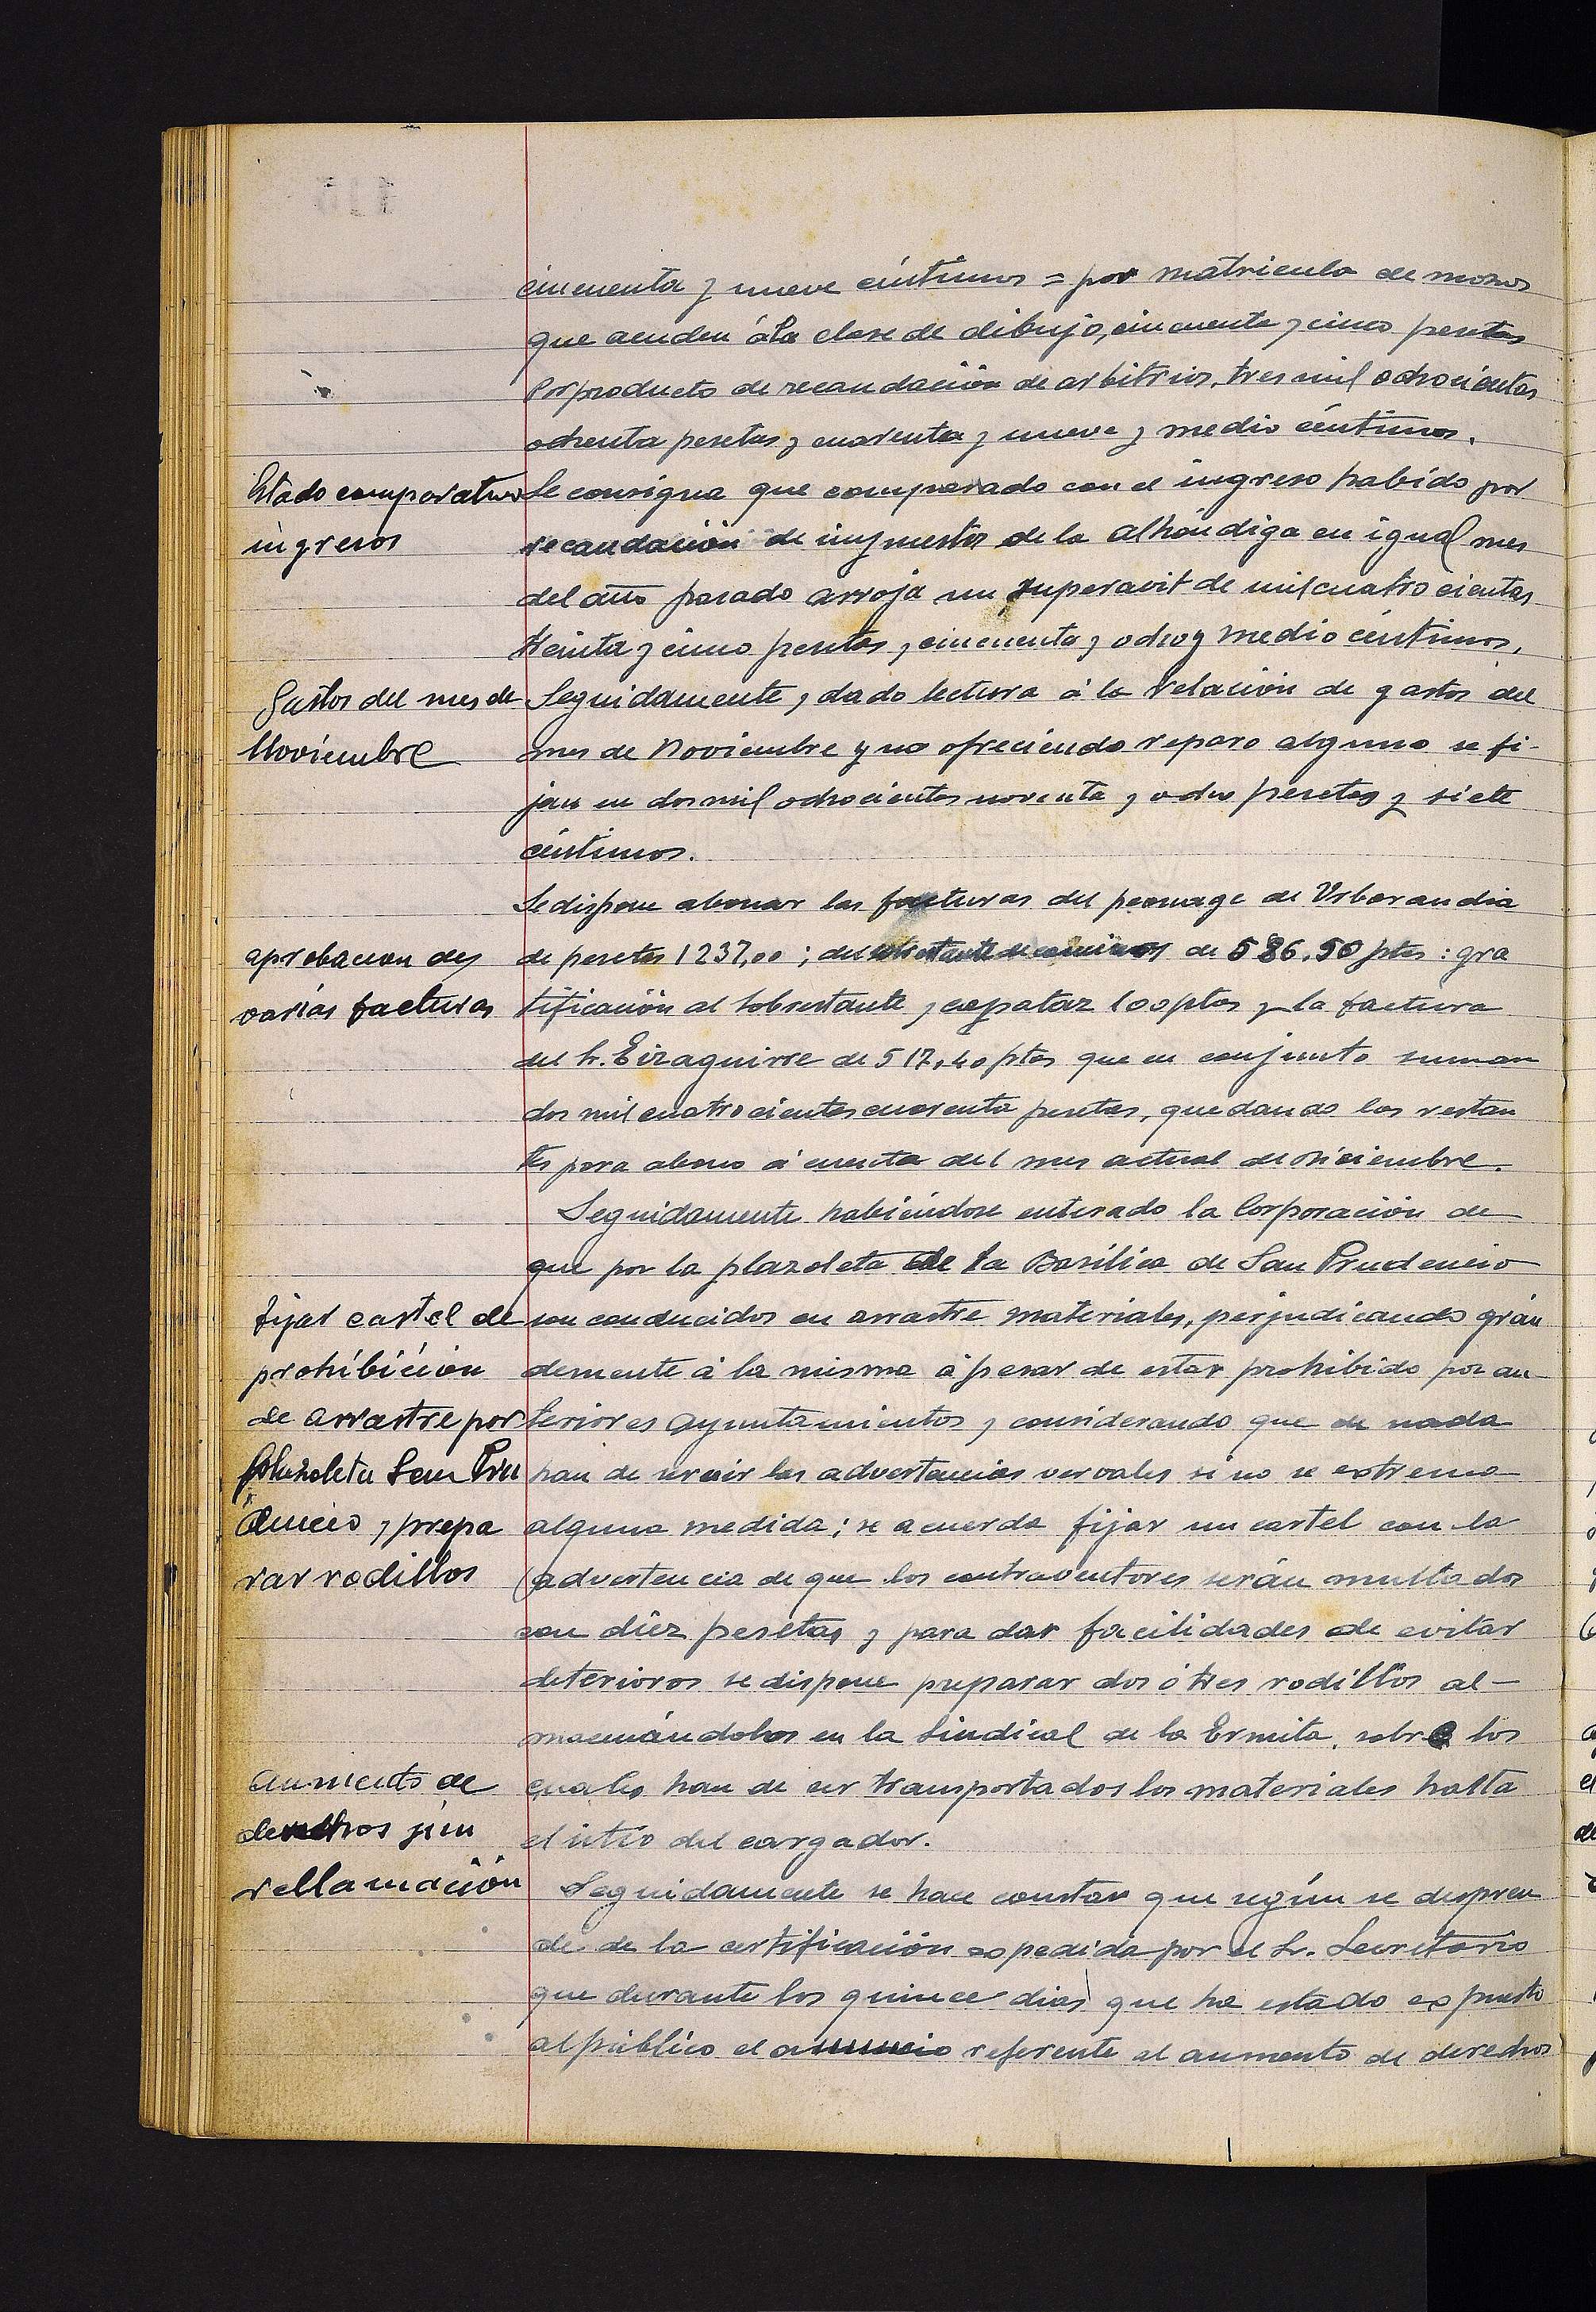 cincuenta y nueve céntimos = por matricula de mozos
que acuden á la clase de dibujo, cincuenta y cinco pesetas
Por producto de recaudación de arbitrios, tres mil ochocientas
ochenta pesetas y cuarenta y nueve y medio céntimos.
Estado comparativo
ingresos
Se consigna que comparado con el ingreso habido por
recaudación de impuestos de la alhóndiga en igual mes
del año pasado arroja un superavit de mil cuatrocientas
treinta y cinco pesetas y cincuenta y ocho y medio céntimos.
Gastos del mes de
Noviembre
Seguidamente, dado lectura á la relación de gastos del
mes de Noviembre y no ofreciendo reparo alguno se fi-
jan en dos mil ochocientas noventa y ocho pesetas y siete
céntimos.
aprobacion de
varias facturas
Se dispone abonar las facturas del peonage de Urbarandia
de pesetas 1237,00; del sobrestante de caminos de 586.50 ptas: gra
tificación al sobrestante y capataz 100 ptas y la factura
del Sr. Eizaguirre de 517,40 ptas que en conjunto suman
dos mil cuatrocientas cuarenta pesetas, quedando las restan
tes para abono á cuenta del mes actual de Diciembre.
Seguidamente habiéndose enterado la Corporación de
que por la plazoleta de la Basílica de San Prudencio
fijar cartel de
prohibición
de arrastre por
plazoleta San Pru
dencio y prepa
rar rodillos
son conducidos en arrastre materiales, perjudicando gran
demente á la misma á pesar de estar prohibido por an-
teriores ayuntamientos y considerando que de nada
han de servir las advertencias vervales si no se extrema
alguna medida; se acuerda fijar un cartel con la
advertencia de que los contraventores serán multados
con diez pesetas y para dar facilidades de evitar
deterioros se dispone preparar dos ó tres rodillos al-
macenándolos en la Sindical de la Ermita, sobre los
cuales han de ser transportados los materiales hasta
el sitio del cargador.
Aumento de
derechos sin
rellamación
Seguidamente se hace constar que según se despren
de de la certificación expedida por el Sr. Secretario
que durante los quince dias que ha estado expuesto
al público el anuncio referente al aumento de derechos